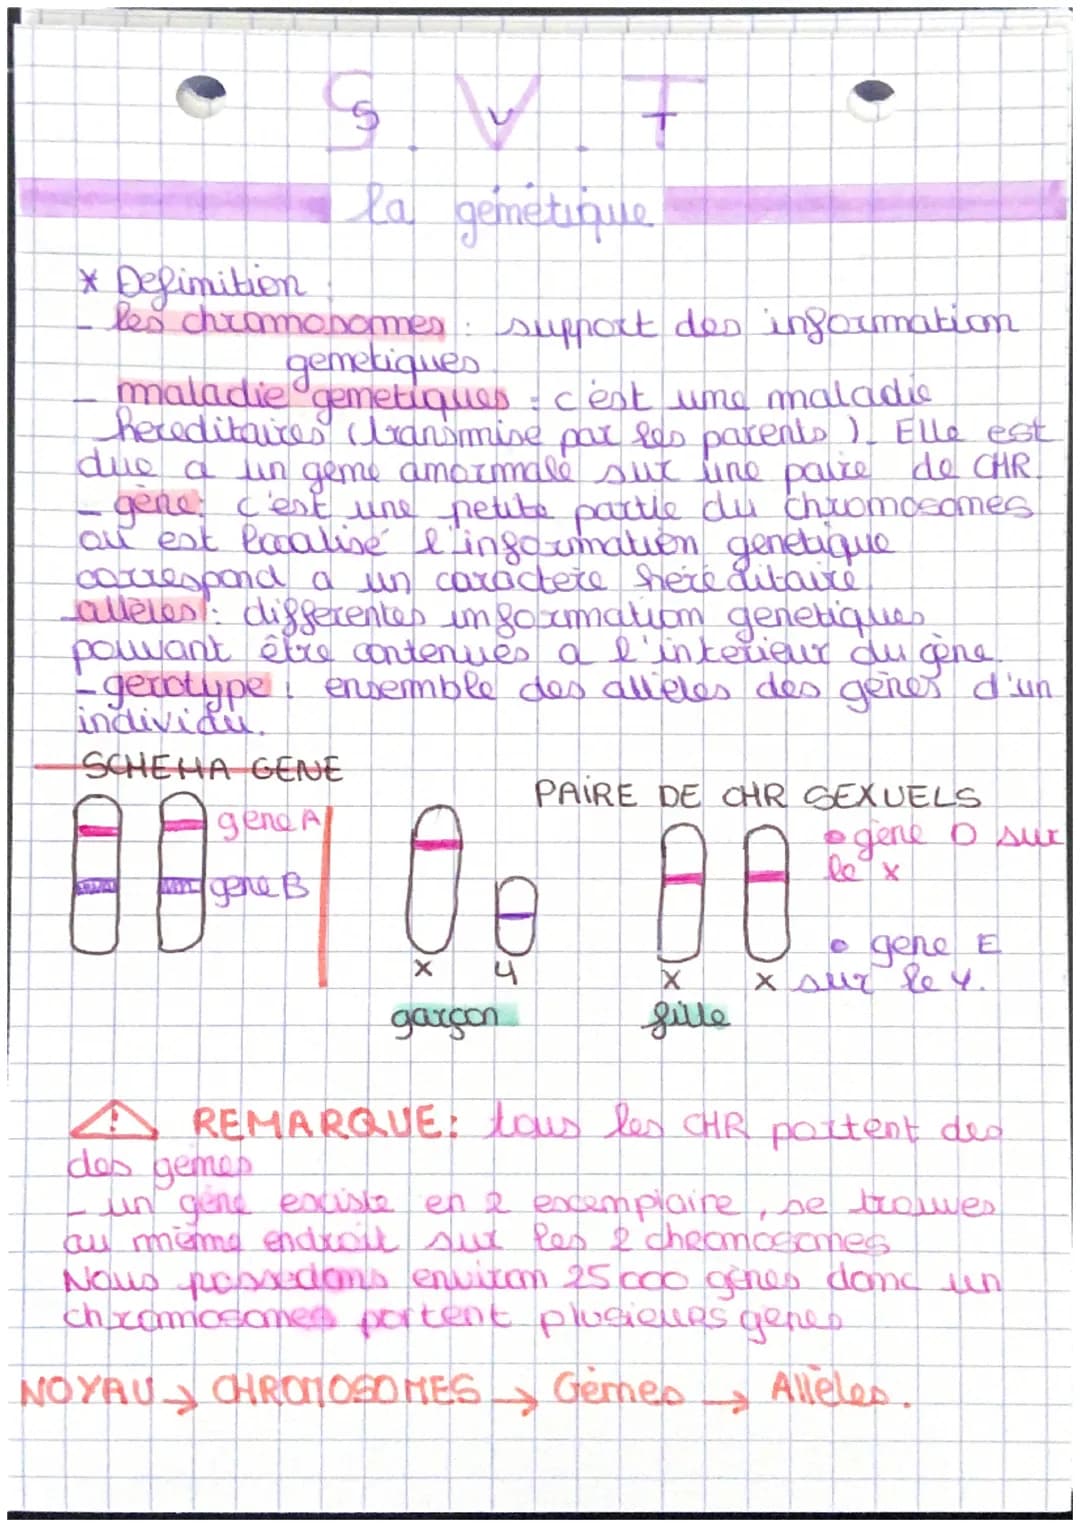 S.V.T
la génétique
* Definition :
- les chromosomes : support des information
genetiques.
- maladie genetiques : c'est une maladie
hereditaires (transmise par les parents). Elle est
due a un gene anormale sur une paire de CHR.
- gène: c'est une petite partie du chromosomes
ou est localisé l'information genetique
correspond a un caractere hereditaire
- allèles : differentes information genetiques
pouvant être contenues a l'interieur du gène.
- genotype : ensemble des alleles des gènes d'un
individu.
SCHEMA GENE
PAIRE DE CHR SEXUELS
gene A
gene B
• gène D sur
le x
• gene E
sur le Y.
x Y
x x
garçon
fille
! REMARQUE: tous les CHR portent des
des genes
- un gène existe en 2 exemplaire, se trouves
au même endroit sur les 2 chromosomes
Nous possedons environ 25 000 gènes donc un
chromosomes portent plusieurs genes
NOYAU → CHROMOSOMES → Gènes → Allèles.